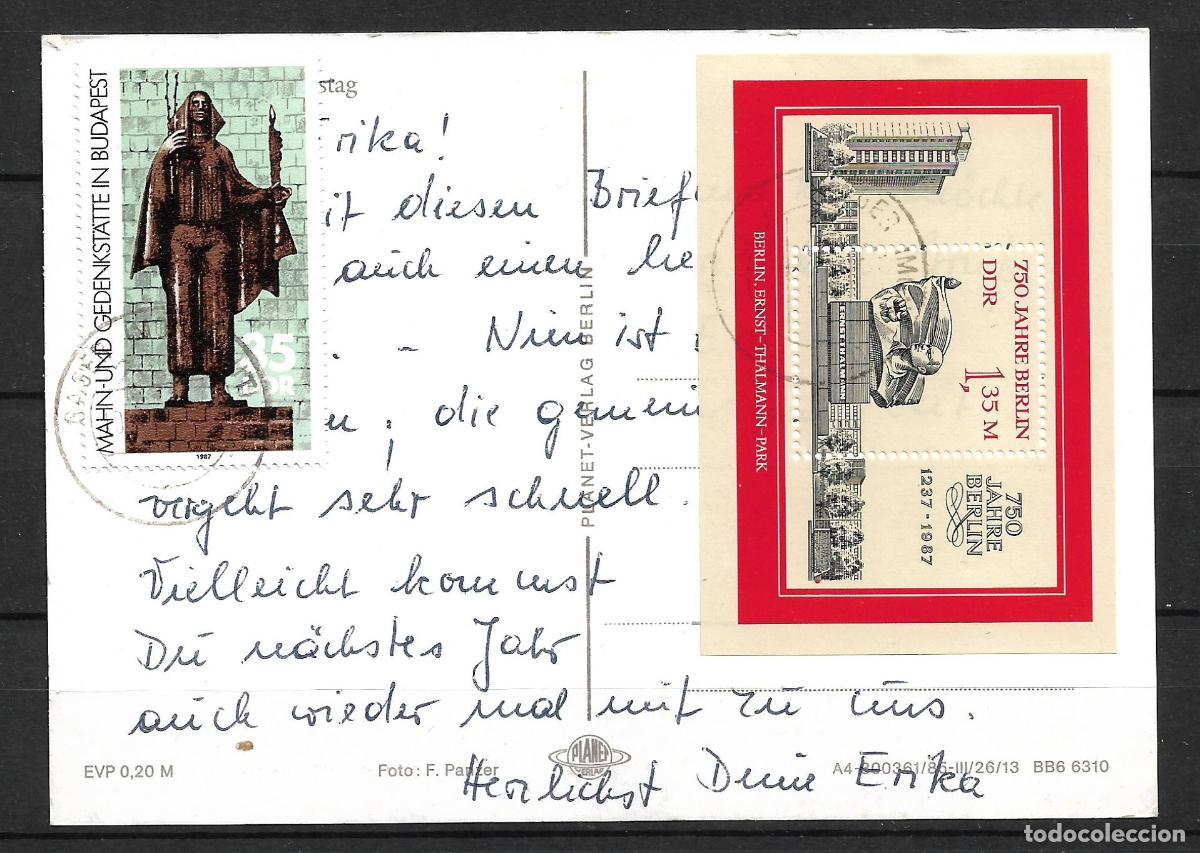 stag
MAHN-UND GEDENKSTÄTTE IN BUDAPEST
35
DDR
1987
rika!
it diesen Brief
auch einen he
- Nun ist
en, die gemein
vergeht sehr schnell.
Vielleicht kommst
Du nächstes Jahr
auch wieder mal mit zu uns.
Herzlichst Deine Erika
PLANET-VERLAG BERLIN
BERLIN, ERNST-THÄLMANN-PARK
ERNST THÄLMANN
750 JAHRE BERLIN
DDR
1,35 M
750
JAHRE
BERLIN
1237-1987
EVP 0,20 M
Foto: F. Panzer
PLANET
VERLAG
A4-800361/85-III/26/13 BB6 6310
todocoleccion